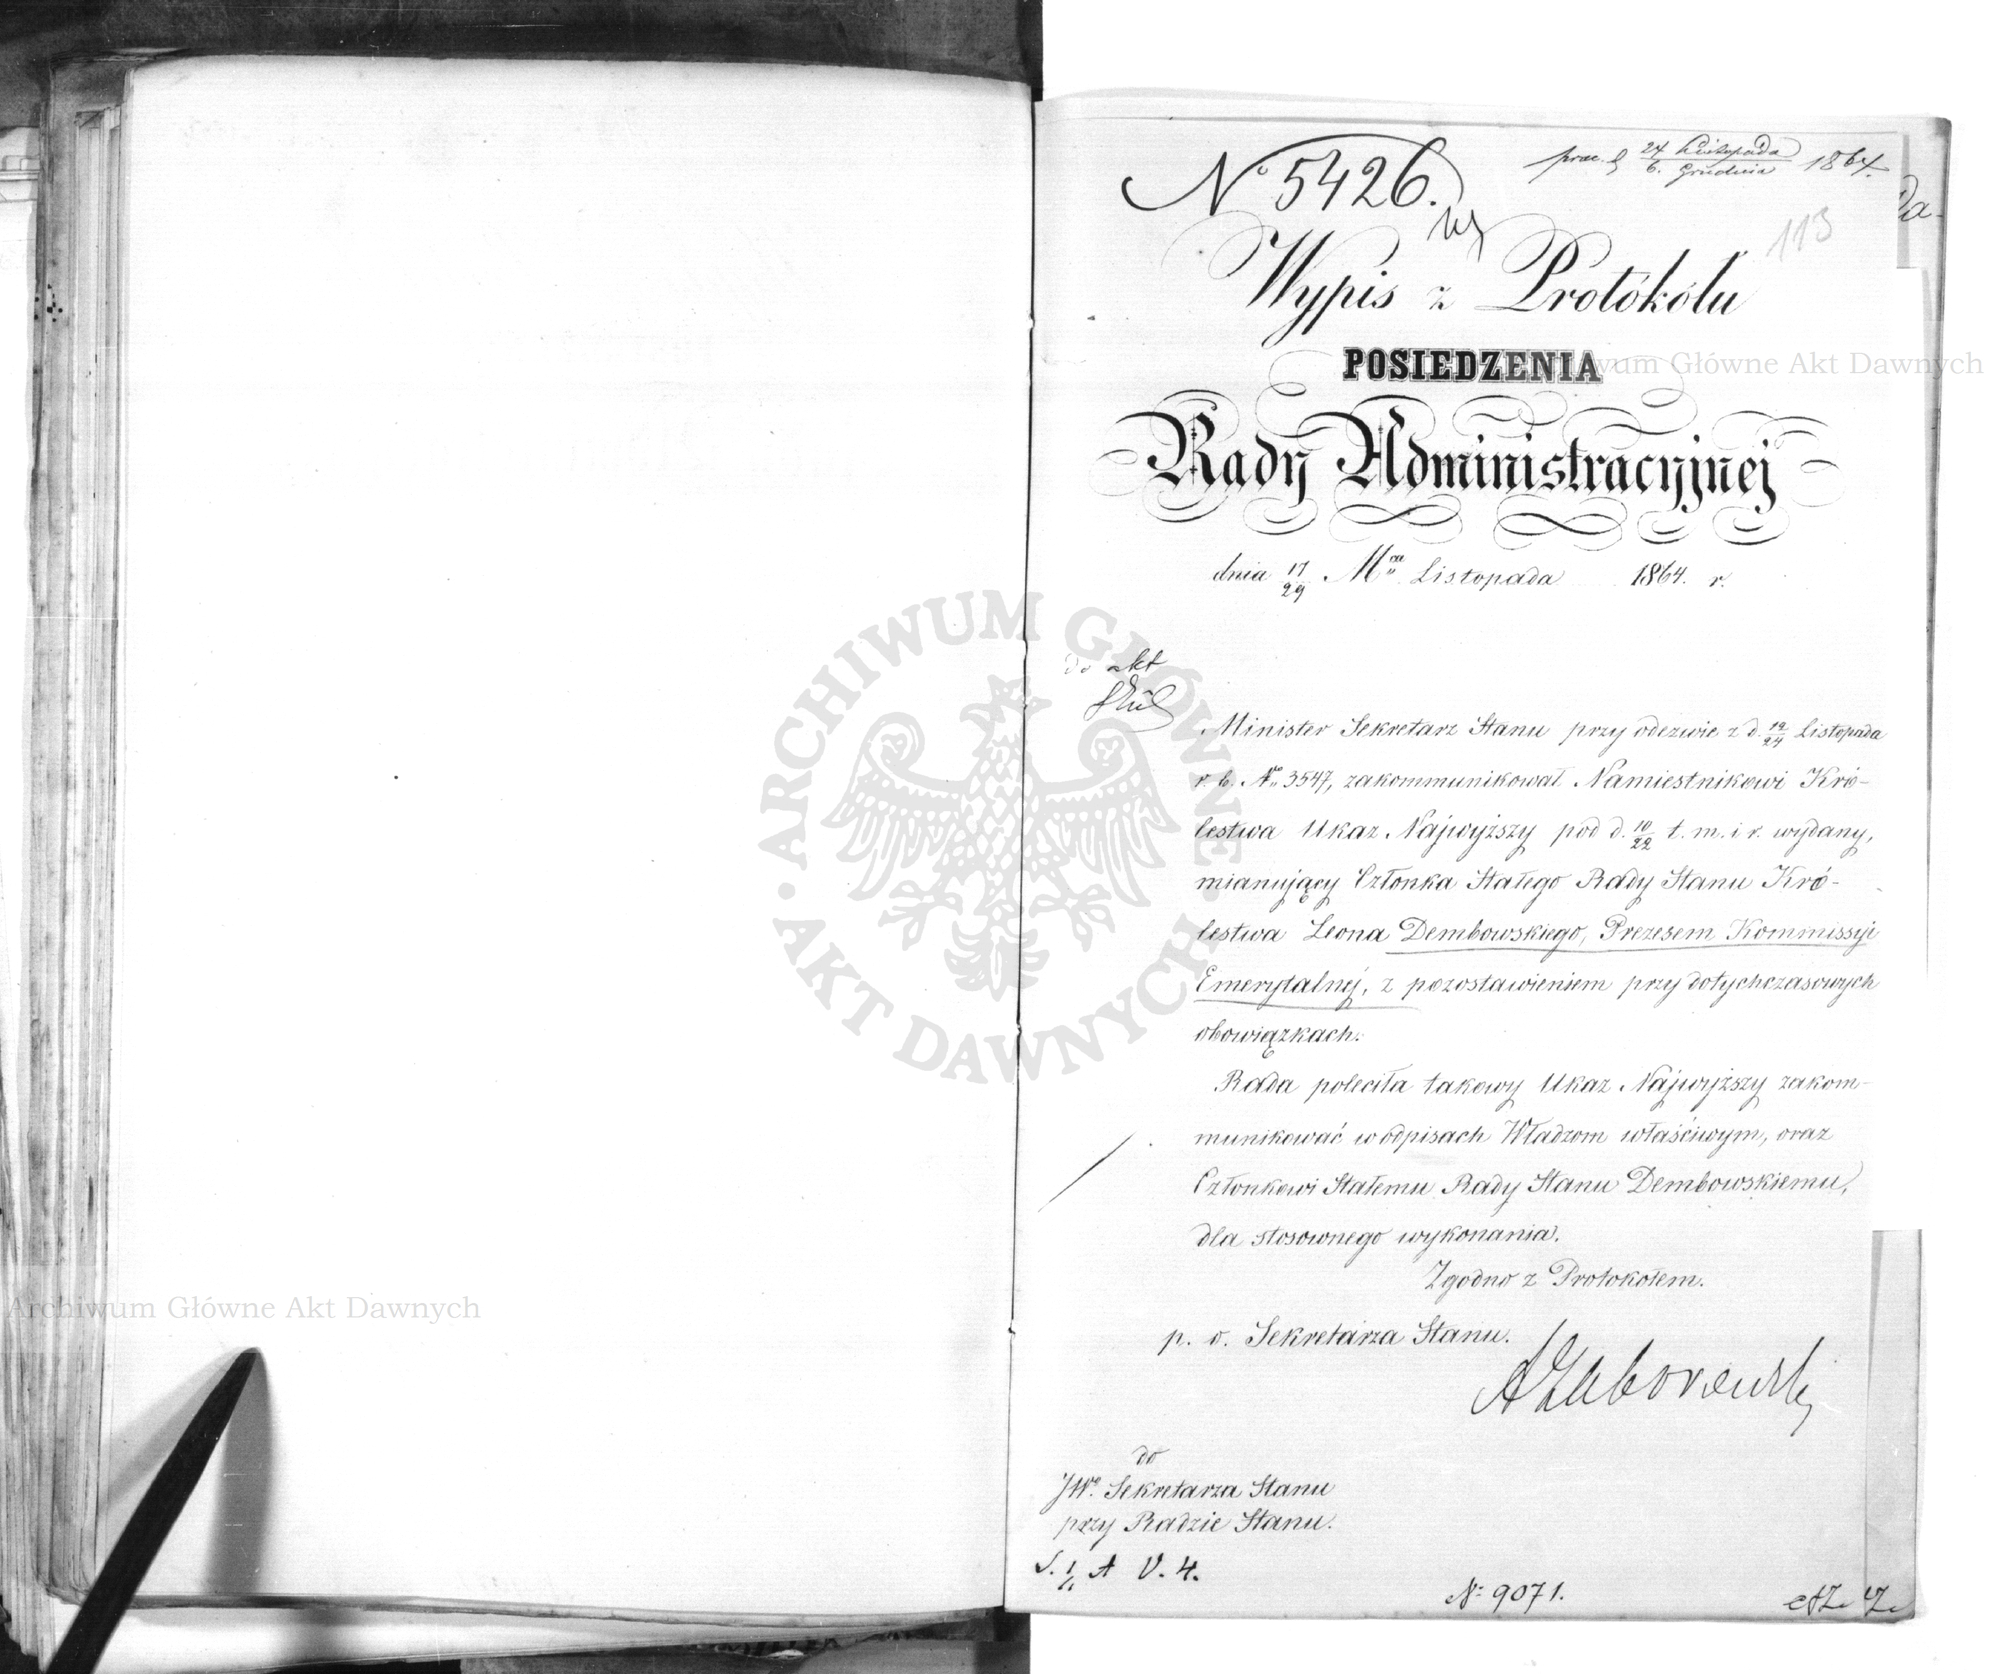 N° 5426.
24 Listopada
6. Grudnia 1864.
113
Wypis z Protókółu
POSIEDZENIA
Rady Administracyjnej
dnia 17/29 Mca Listopada 1864. r.
do akt
Minister Sekretarz Stanu przy odezwie z d. 12/24 Listopada
r. b. No 3547, zakommunikował Namiestnikowi Kró-
lestwa Ukaz Najwyższy pod d. 10/22 t. m. i r. wydany,
mianujący Członka Stałego Rady Stanu Kró-
lestwa Leona Dembowskiego, Prezesem Kommissyi
Emerytalnej, z pozostawieniem przy dotychczasowych
obowiązkach.
Rada poleciła takowy Ukaz Najwyższy zakom-
munikować w odpisach Władzom właściwym, oraz
Członkowi Stałemu Rady Stanu Dembowskiemu,
dla stosownego wykonania.
Zgodno z Protokołem.
p. o. Sekretarza Stanu.
AZaborowski
do
JWo Sekretarza Stanu
przy Radzie Stanu.
A V. 4.
N: 9071.
Archiwum Główne Akt Dawnych
Archiwum Główne Akt Dawnych
ARCHIWUM GŁÓWNE AKT DAWNYCH